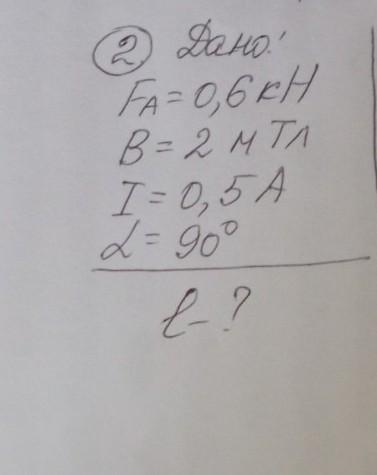 2 Дано:
FA = 0,6 кН
B = 2 мТл
I = 0,5 А
α = 90°
l - ?